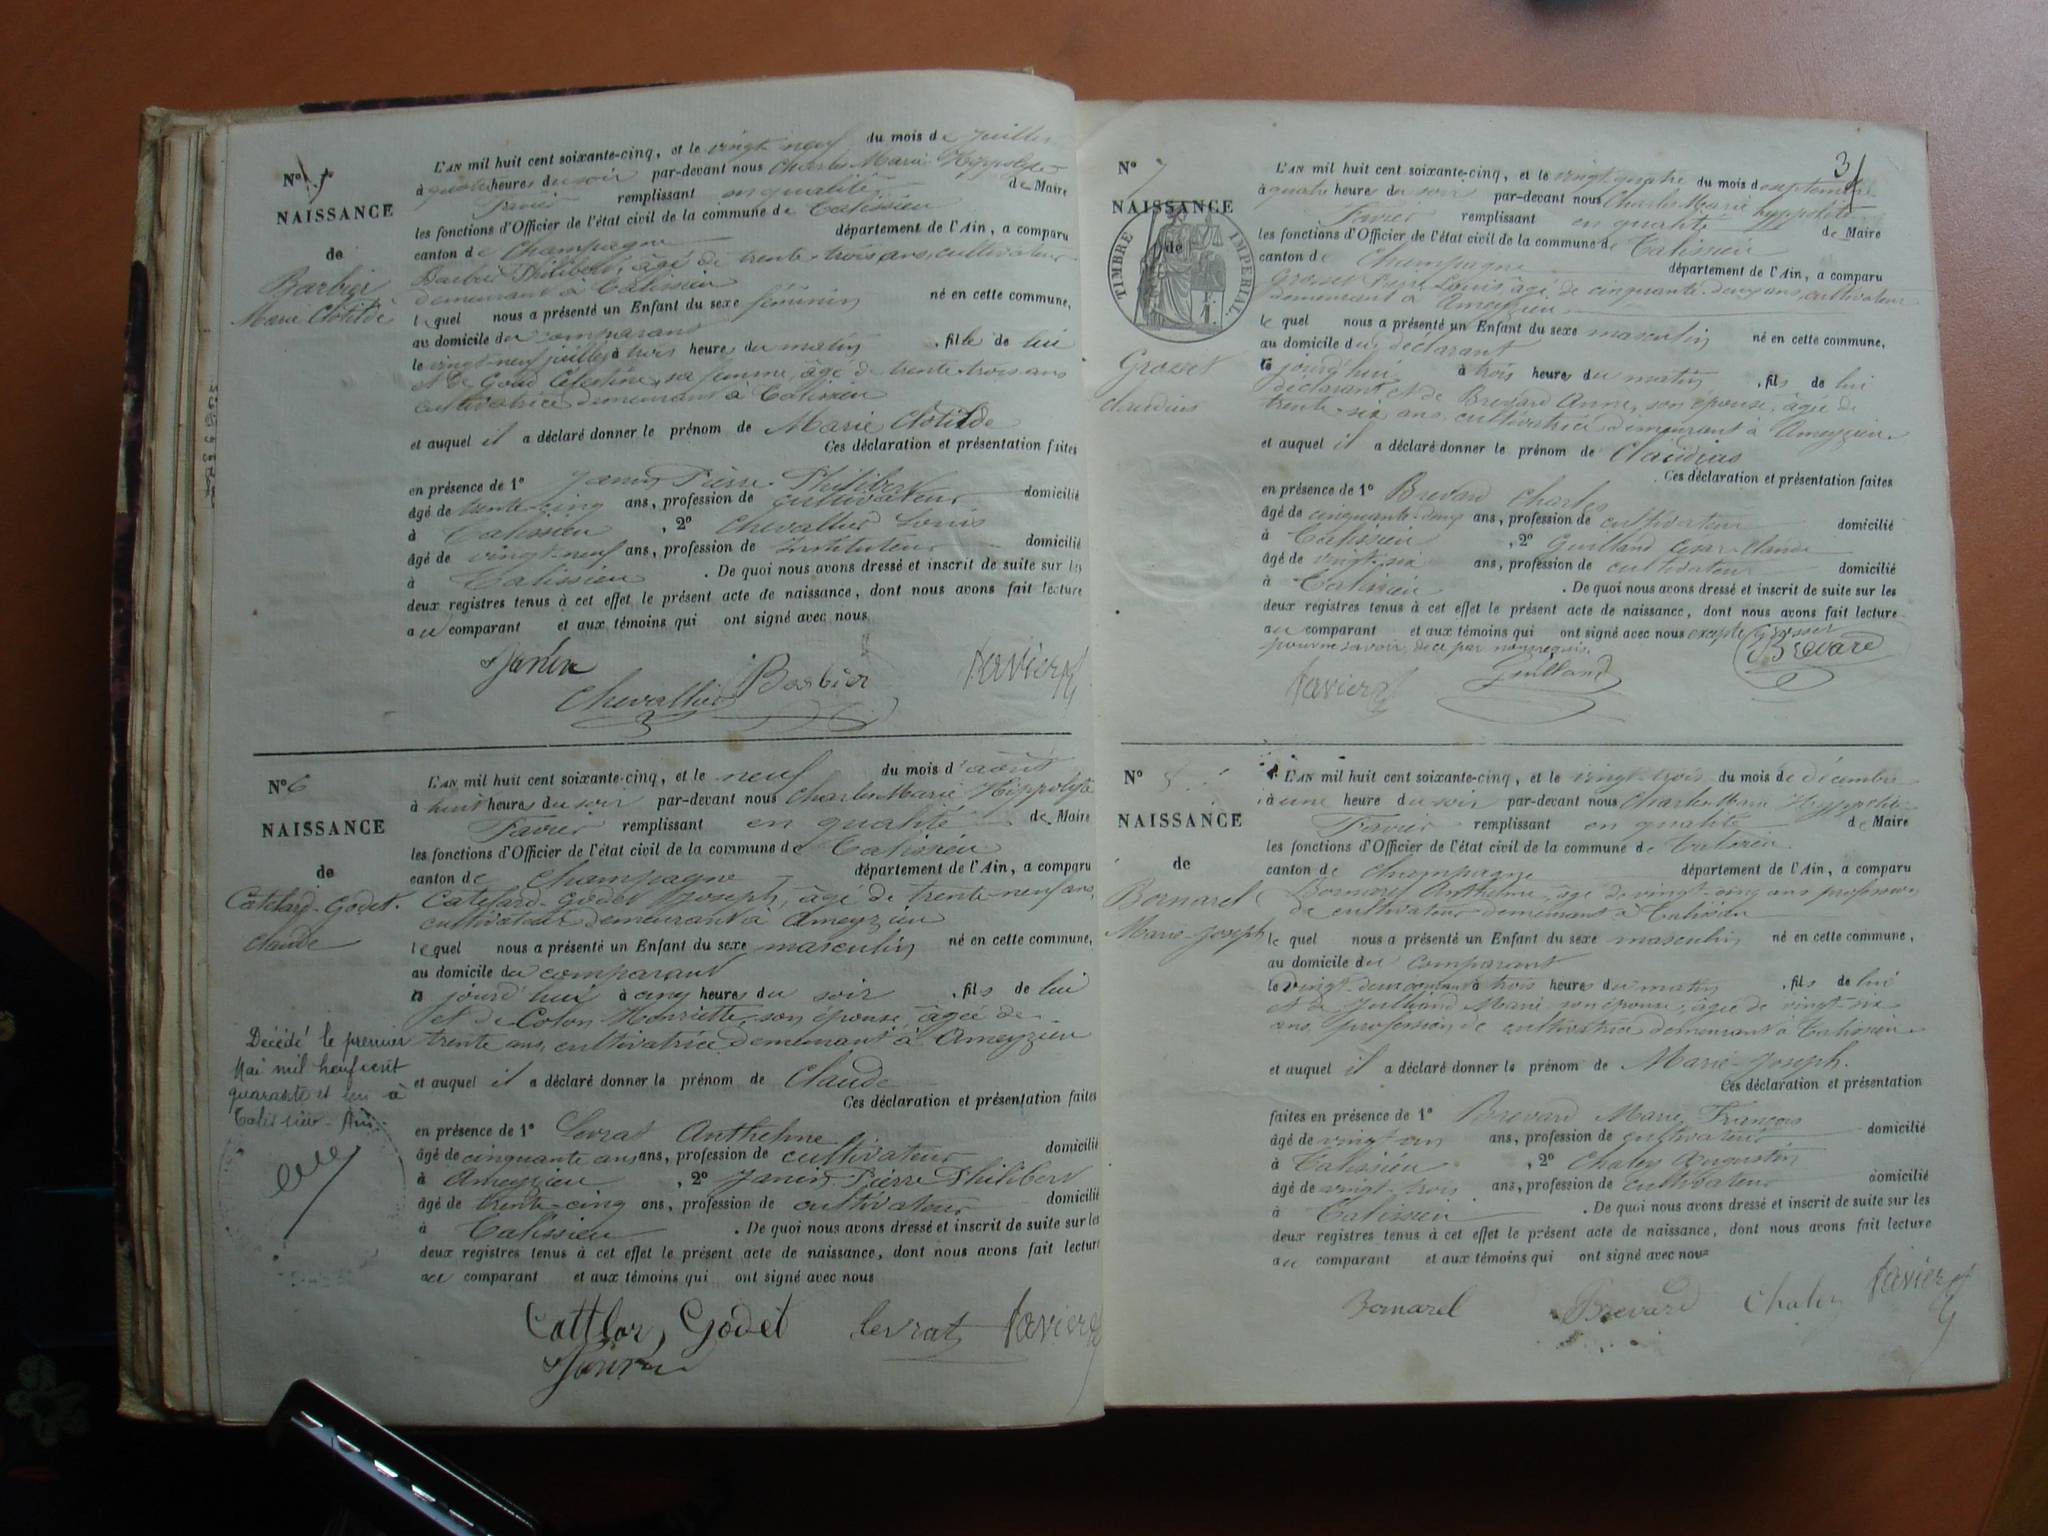 L'AN mil huit cent soixante-cinq, et le vingt neuf du mois de juillet
à quatre heures du soir par-devant nous Charles Marie Hippolyte
Favier remplissant en qualité de Maire
les fonctions d'Officier de l'état civil de la commune de Talissieu
canton de Champagne département de l'Ain, a comparu
Barbier Philibert, âgé de trente-trois ans, cultivateur
demeurant à Talissieu
lequel nous a présenté un Enfant du sexe féminin né en cette commune,
au domicile du comparant
le vingt-neuf juillet à trois heures du matin, fille de lui
et de Goud Célestine, sa femme, âgé de trente-trois ans
cultivatrice demeurant à Talissieu
et auquel il a déclaré donner le prénom de Marie Clotilde
Ces déclaration et présentation faites
en présence de 1° Janin Pierre Philibert
âgé de trente-cinq ans, profession de cultivateur domicilié
à Talissieu, 2° Chevallier Louis
âgé de vingt-neuf ans, profession de Instituteur domicilié
à Talissieu. De quoi nous avons dressé et inscrit de suite sur les
deux registres tenus à cet effet le présent acte de naissance, dont nous avons fait lecture
au comparant et aux témoins qui ont signé avec nous
N°
NAISSANCE
de
Barbier
Marie Clotilde
Janin
Chevallier Barbier Favier
N° 6
NAISSANCE
de
Catelard-Godet
Claude
L'AN mil huit cent soixante-cinq, et le neuf du mois d'août
à huit heures du soir par-devant nous Charles Marie Hippolyte
Favier remplissant en qualité de Maire
les fonctions d'Officier de l'état civil de la commune de Talissieu
canton de Champagne département de l'Ain, a comparu
Catelard-Godet Joseph, âgé de trente-neuf ans,
cultivateur demeurant à Ameyzieu
lequel nous a présenté un Enfant du sexe masculin né en cette commune,
au domicile du comparant
jourd'hui à cinq heures du soir, fils de lui
et de Colon Henriette, son épouse, âgée de
trente ans, cultivatrice demeurant à Ameyzieu
et auquel il a déclaré donner le prénom de Claude
Ces déclaration et présentation faites
en présence de 1° Levrat Anthelme
âgé de cinquante ans ans, profession de cultivateur domicilié
à Ameyzieu, 2° Janin Pierre Philibert
âgé de trente-cinq ans, profession de cultivateur domicilié
à Talissieu. De quoi nous avons dressé et inscrit de suite sur les
deux registres tenus à cet effet le présent acte de naissance, dont nous avons fait lecture
au comparant et aux témoins qui ont signé avec nous
Décédé le premier
Mai mil neuf cent
quarante et un à
Talissieu - Ain
Cattlar, Godet Levrat Favier
Janin
3
N° 7
NAISSANCE
de
TIMBRE IMPERIAL.
Grosset
Claudius
L'AN mil huit cent soixante-cinq, et le vingt-quatre du mois de septembre
à quatre heures du soir par-devant nous Charles Marie Hyppolite
Favier remplissant en qualité de Maire
les fonctions d'Officier de l'état civil de la commune de Talissieu
canton de Champagne département de l'Ain, a comparu
Grosset Louis, âgé de cinquante-deux ans, cultivateur
demeurant à Ameyzieu
lequel nous a présenté un Enfant du sexe masculin né en cette commune,
au domicile du déclarant
jourd'hui à trois heures du matin, fils de lui
déclarant et de Brevard Anne, son épouse, âgée de
trente-six ans, cultivatrice demeurant à Ameyzieu
et auquel il a déclaré donner le prénom de Claudius
Ces déclaration et présentation faites
en présence de 1° Brevard Charles
âgé de cinquante-deux ans, profession de cultivateur domicilié
à Talissieu, 2° Guilland César-Claude
âgé de vingt-six ans, profession de cultivateur domicilié
à Talissieu. De quoi nous avons dressé et inscrit de suite sur les
deux registres tenus à cet effet le présent acte de naissance, dont nous avons fait lecture
au comparant et aux témoins qui ont signé avec nous excepté Grosset
pour ne savoir, de ce par nous requis.
Favier Guilland Brevard
N° 8
NAISSANCE
de
Bornarel
Marie-Joseph
L'AN mil huit cent soixante-cinq, et le vingt-trois du mois de décembre
à une heure du soir par-devant nous Charles Marie Hyppolite
Favier remplissant en qualité de Maire
les fonctions d'Officier de l'état civil de la commune de Talissieu
canton de Champagne département de l'Ain, a comparu
Bornarel Anthelme, âgé de vingt-cinq ans profession
de cultivateur demeurant à Talissieu
lequel nous a présenté un Enfant du sexe masculin né en cette commune,
au domicile du comparant
le vingt-deux courant à trois heures du matin, fils de lui
et de Julliand Marie son épouse, âgée de vingt-six
ans, profession de cultivatrice demeurant à Talissieu
et auquel il a déclaré donner le prénom de Marie-Joseph.
Ces déclaration et présentation
faites en présence de 1° Brevard Marie François
âgé de vingt un ans, profession de cultivateur domicilié
à Talissieu, 2° Chaley Augustin
âgé de vingt-trois ans, profession de cultivateur domicilié
à Talissieu. De quoi nous avons dressé et inscrit de suite sur les
deux registres tenus à cet effet le présent acte de naissance, dont nous avons fait lecture
au comparant et aux témoins qui ont signé avec nous
Bornarel Brevard Chaley Favier